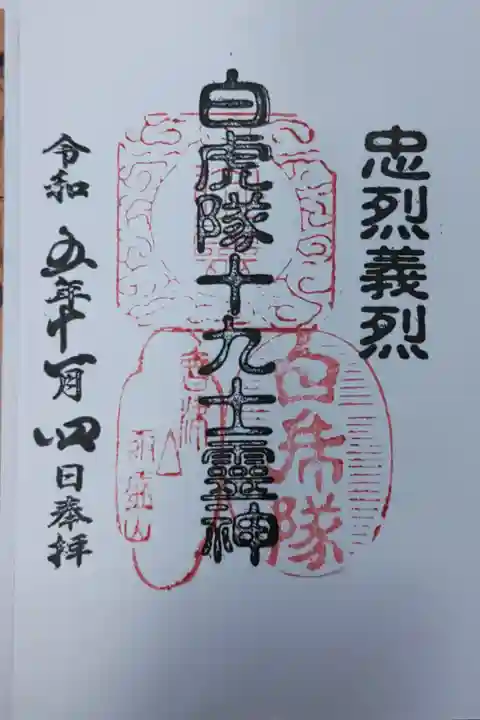 忠烈義烈
白虎隊十九士靈神
白虎隊
會津
飯盛山
令和五年十一月四日奉拝